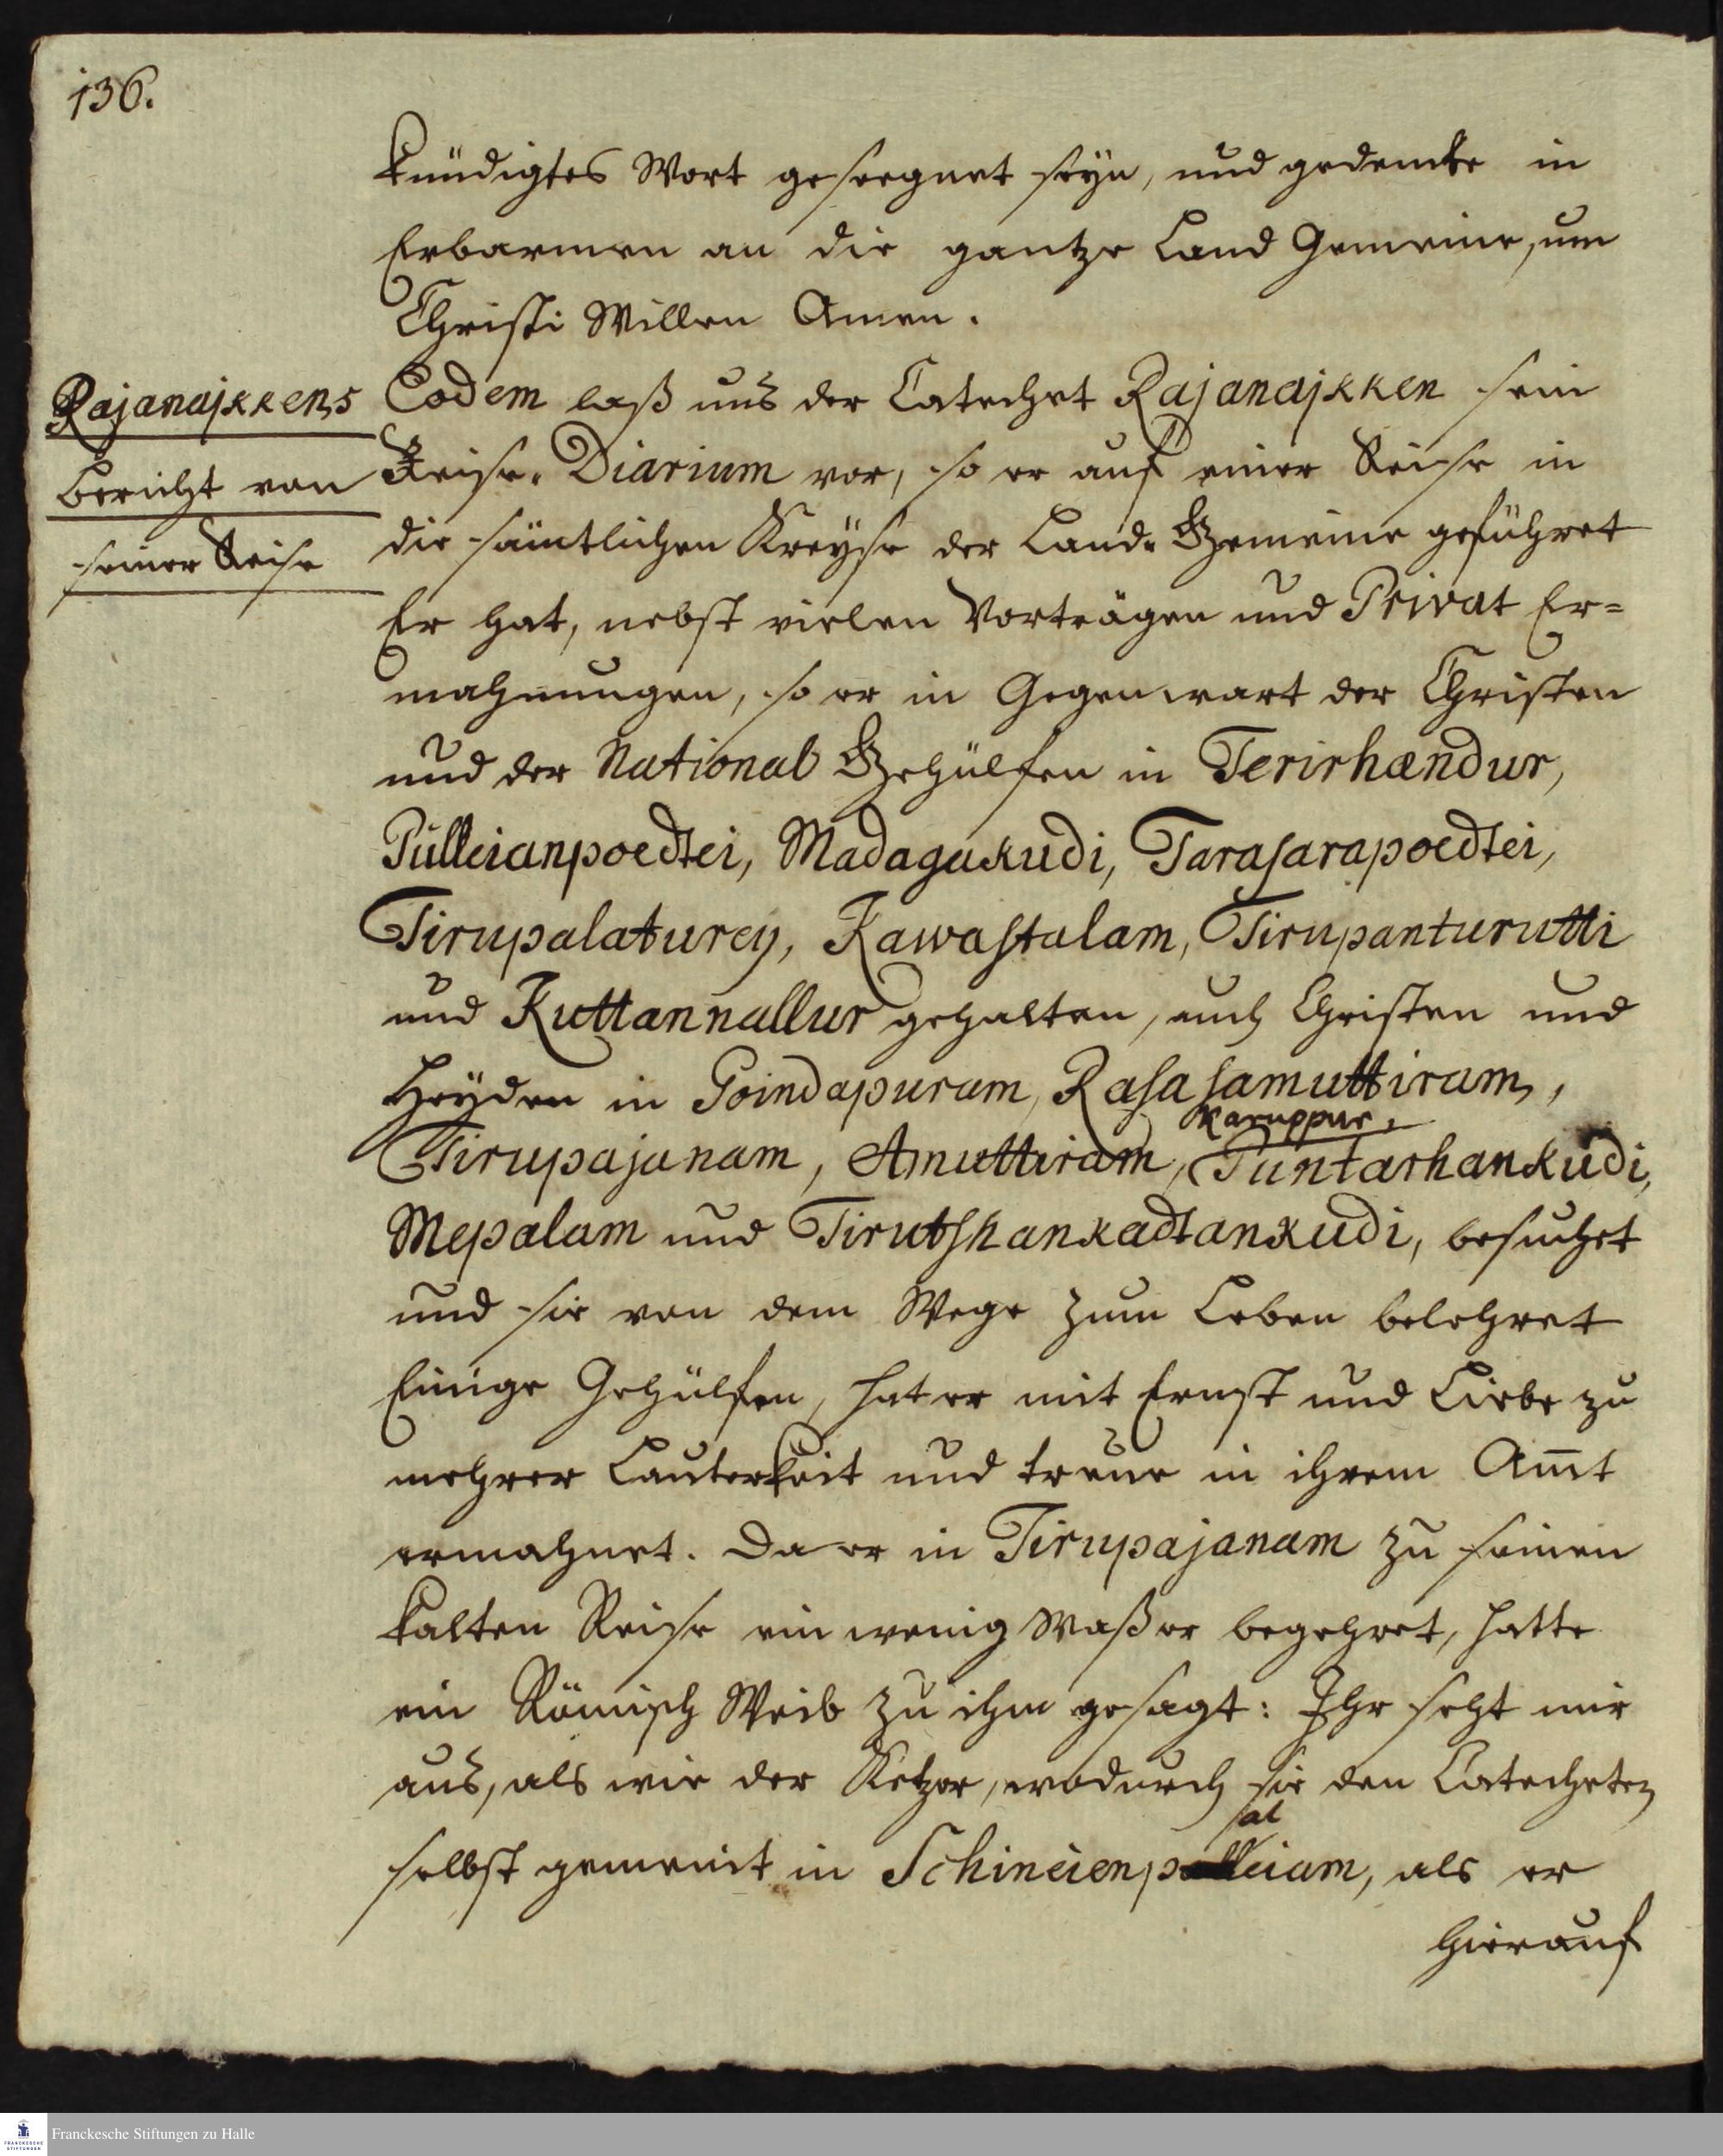 136.
kündigtes Wort geseegnet seyn, und gedencke in
Erbarmen an die gantze Land Gemeine, um
Christi Willen Amen.
Rajanajkkens
bericht von
seiner Reise
Eodem laß uns der Catechet Rajanajkken sein
Reise-Diarium vor, so er auf einer Reise in
die sämtlichen Kreyse der Land-Gemeine geführet
Er hat, nebst vielen Vorträgen und Privat Er=
mahnungen, so er in Gegenwart der Christen
und der National Gehülfen in Terirhændur,
Pülleianpoedtei, Madagukudi, Tarasarapoedtei,
Tirupalaturey, Kawastalam, Tirupanturutti
und Kuttannallur gehalten, auch Christen und
Heyden in Goindapuram, Rasasamuttiram,
Karuppur,
Tirupajanam, Amuttiram, Puntarhankudi,
Mepalam und Tirutshankadtankudi, besuchet
und sie von dem Wege zum Leben belehret
Einige Gehülfen, hat er mit Ernst und Liebe zu
mehrer Lauterkeit und treue in ihrem Amt
ermahnet. Da er in Tirupajanam zu seinen
kalten Reise ein wenig Waßer begehret, hatte
ein Römisch Weib zu ihm gesagt: Ihr seht mir
aus, als wie der Ketzer, wodurch sie den Catecheten
selbst gemeint in Schineienpaleiam, als er
hierauf
Franckesche Stiftungen zu Halle